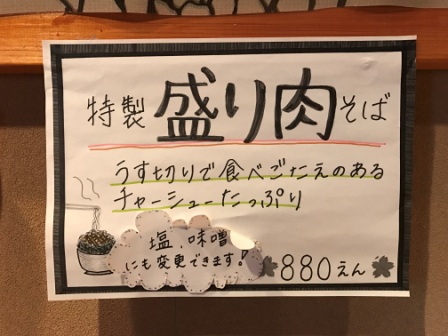 特製 盛り肉そば
うす切りで食べごたえのある
チャーシューたっぷり
塩、味噌
にも変更できます!
880えん